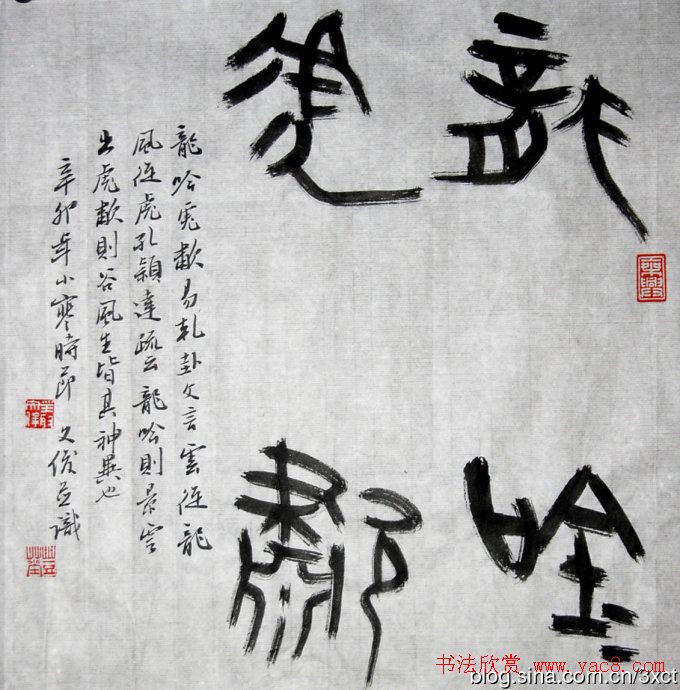 龍吟
虎歗
龍吟虎歗易乾卦文言雲從龍
風從虎孔穎達疏云龍吟則景雲
出虎歗則谷風生皆其神異也
辛卯年小寒時節 文俊並識
书法欣赏 www.yac8.com
blog.sina.com.cn/3xct